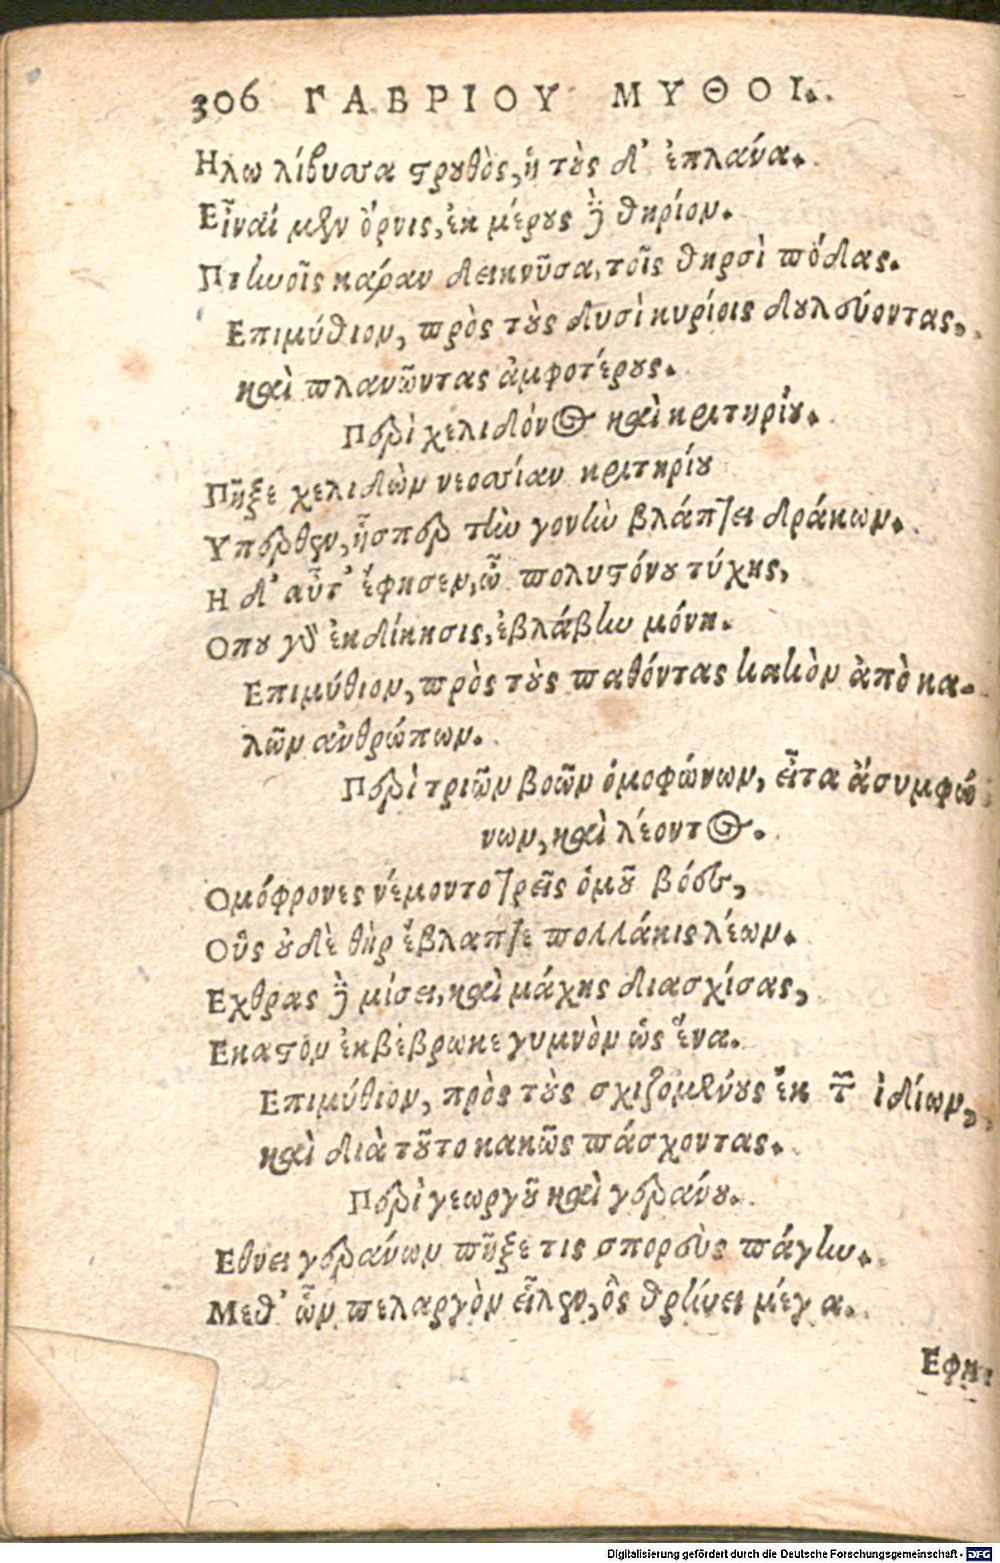 306 ΓΑΒΡΙΟΥ ΜΥΘΟΙ.
Ηλω λίβυσσα στρουθὸς, ἡ τοὺς δ' ἐπλάνα.
Εἶναί μὲν ὄρνις, ἐκ μέρους ἢ θηρίον.
Πτωοῖς κάραν δεικνῦσα, τοῖς θηρσὶ πόδας.
Επιμύθιον, πρὸς τοὺς δυσὶ κυρίοις δουλεύοντας,
καὶ πλανῶντας ἀμφοτέρους.
Περὶ χελιδόνος καὶ κριτηρίου.
Πῆξε χελιδὼν νεοσσίαν κριτηρίου
Υπερθεν, ἧσπερ τὴν γονὴν βλάπτει δράκων.
Η δ' αὖτ' ἔφησεν, ὦ πολυστόνου τύχης,
Οπου γὰρ ἐκδίκησις, ἐβλάβην μόνη.
Επιμύθιον, πρὸς τοὺς παθόντας κακὸν ἀπὸ κα-
λῶν ἀνθρώπων.
Περὶ τριῶν βοῶν ὁμοφώνων, εἶτα ἀσυμφώ
νων, καὶ λέοντος.
Ομόφρονες νέμοντο τρεῖς ὁμοῦ βόες,
Οὓς οὐδὲ θὴρ ἔβλαπτε πολλάκις λέων.
Εχθρας ἢ μίσει, καὶ μάχης διασχίσας,
Εκαστὸν ἐκβέβρωκε γυμνὸν ὡς ἕνα.
Επιμύθιον, πρὸς τοὺς σχιζομένους ἐκ τῶν ἰδίων,
καὶ διὰ τοῦτο κακῶς πάσχοντας.
Περὶ γεωργοῦ καὶ γεράνου.
Εθνει γεράνων πῆξε τις σπορεὺς πάγην.
Μεθ' ὧν πελαργὸν εἷλεν, ὃς θρήνει μέγα.
Εφη
Digitalisierung gefördert durch die Deutsche Forschungsgemeinschaft - DFG